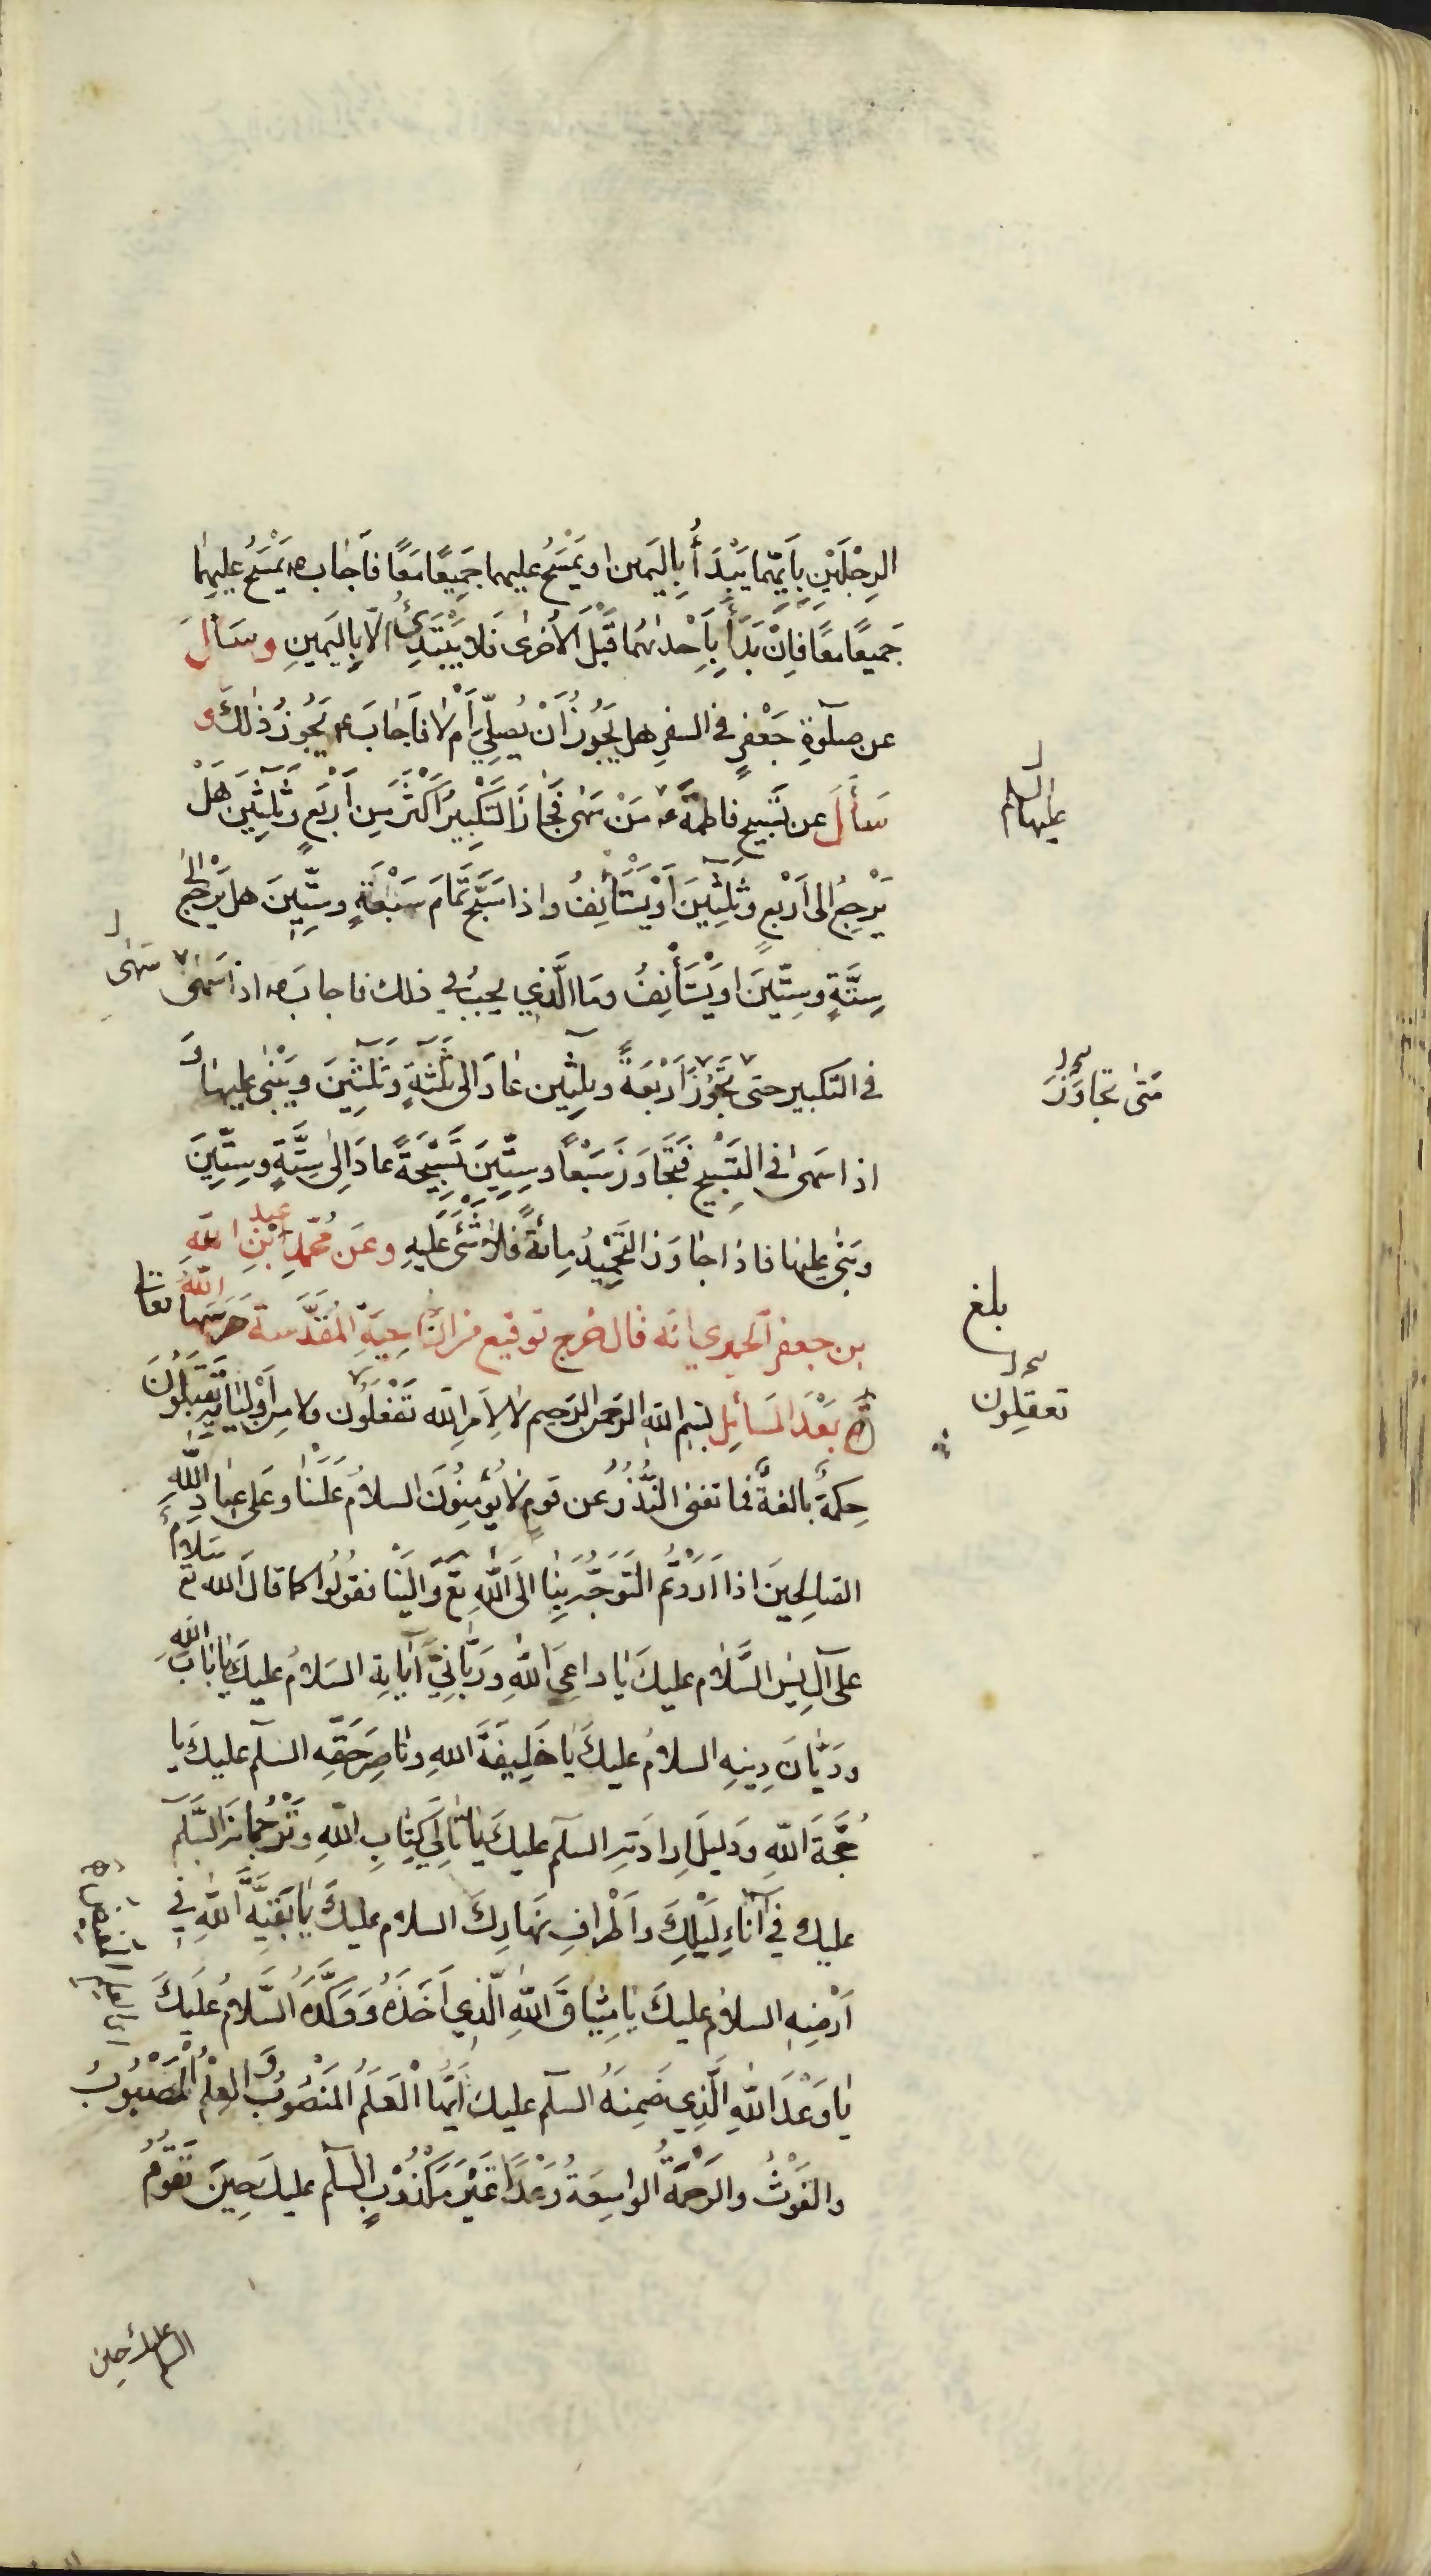 الرِجْلَيْنِ بِاَيِّهِمَا يَبْدَأُ بِاليَمين او يَمْسَحُ عليهما جَمِيعًا مَعًا فاَجابَ ع يَمْسَحُ عليهِما
جَميعًا معًا فاِنْ بَدَأَ بِاِحْدٰيهُمَا قَبْلَ الاُخرٰى فَلا يَبْتَدِئُ الّا بِاليَمينِ وسَألَ
عن صلٰوةِ جَعْفرٍ في السفرِ هل يَجُوزُ اَنْ يُصلِّيَ اَمْ لا فاَجابَ ع يَجُوزُ ذٰلكَ و
سَأَلَ عن تَسْبيحِ فاطمةَ ع مَنْ سَهٰى فجَازَ التَكْبِيرَ اَكْثَرَ مِن اَرْبَعٍ وثَلٰثِينَ هَلْ
عليها السلام
يَرْجِعُ الى اَرْبَعٍ وثَلٰثِينَ اَوْ يَسْتَأنِفُ واذا سَبَّحَ تَمَامَ سَبْعَةٍ وسِتِّينَ هل يَرْجِعُ الىٰ
سِتَّةٍ وسِتّينَ او يَسْتَأْنِفُ ومَا الَّذي يجبُ في ذلك فاجابَ ع اذا سَهٰى
سَهٰى
في التكبير حتى تَجَوَّزَ اَرْبَعَةً وثلٰثِين عَادَ الى ثَلٰثَةٍ وثَلٰثِينَ ويَبْنى عليها وَ
مَتٰى تجاوَزَ
اذا سَهٰى في التَسْبِيحِ فَتَجَاوَزَ سَبْعًا وسِتِّينَ تَسْبِيْحَةً عادَ اِلىٰ سِتَّةٍ وسِتِّينَ
وبَنٰى عليها فاذا جاوَزَ التَحْمِيْدُ مِائةً فلا شَئَ عَلَيهِ وعَن مُحَمَّدِ ابْنِ عبد اللّهِ
بن جعفر الحميري انه قال خرج توقيع من النّاحِيَةِ المُقَدَّسَة حَرَسَها اللّهُ تعالى
بلغ
بَعْدَ المَسَائِلِ بسم الله الرحمن الرحيم لا لِاَمْرِ الله تَعْقِلُون ولا من اَوْلِيائِه تَقْبَلُونَ
تعقِلون
حِكمَةٌ بالغةٌ فما تغنى النُّذُرُ عن قومٍ لا يُؤمِنُونَ السلامُ عَلَيْنَا وعَلى عِبَادِ اللّهِ
الصالِحينَ اذا اَرَدْتُمُ التَوَجُّهَ بِنَا الَى اللّهِ تع وَاِلَيْنَا فقُولُوا كما قالَ الله تع سَلامٌ
على آلِ يٰسٓ السَّلام عليكَ يا داعِيَ اللّهِ ورَبّانِيَّ آياتِه السَلامُ عليكَ يا بابَ اللّهِ
ودَيّانَ دِينِهِ السلامُ عليكَ يا خَلِيفَةَ اللهِ وناصِرَ حَقِّهِ السلٓم عليكَ يا
حُجَّةَ اللّهِ ودَليلَ اِرادَتِهِ السلٓم عليكَ يا تَالِيَ كِتابِ اللّهِ وتَرْجُمانَه السَّلٓم
عليك في آنَاءِ لَيْلِكَ واَطْرافِ نَهارِكَ السلام عليكَ يا بَقِيَّةَ اللّهِ في
اَرْضِهِ السلامُ عليكَ يا مِيثاقَ اللّهِ الّذِي اَخَذَهُ ووَكَّدَهُ السَّلامُ عَلَيكَ
يا وَعْدَ اللّهِ الَّذِي ضَمِنَهُ السلٓم عليك اَيُّهَا الْعَلَمُ المَنْصُوبُ وَ العِلْمُ المَصْبُوبُ
والغَوْثُ والرَحْمَةُ الواسِعَةُ وَعْدًا غَيْرَ مَكْذُوْبٍ السلٓم عليكَ حِينَ تَقوُمُ
السلم عليك حين